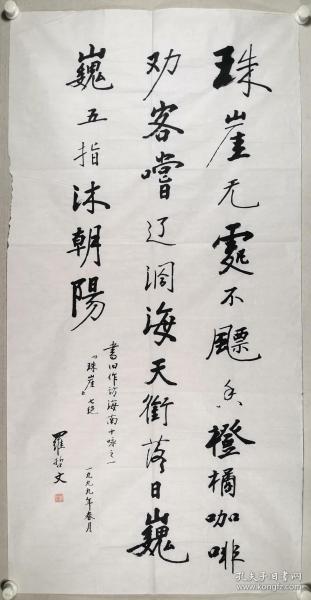 珠崖无處不飃香橙橘咖啡
劝客嚐辽阔海天銜落日巍
巍五指沐朝陽
書旧作访海南十咏之一
《珠崖》七绝
一九九九年春月
羅哲文